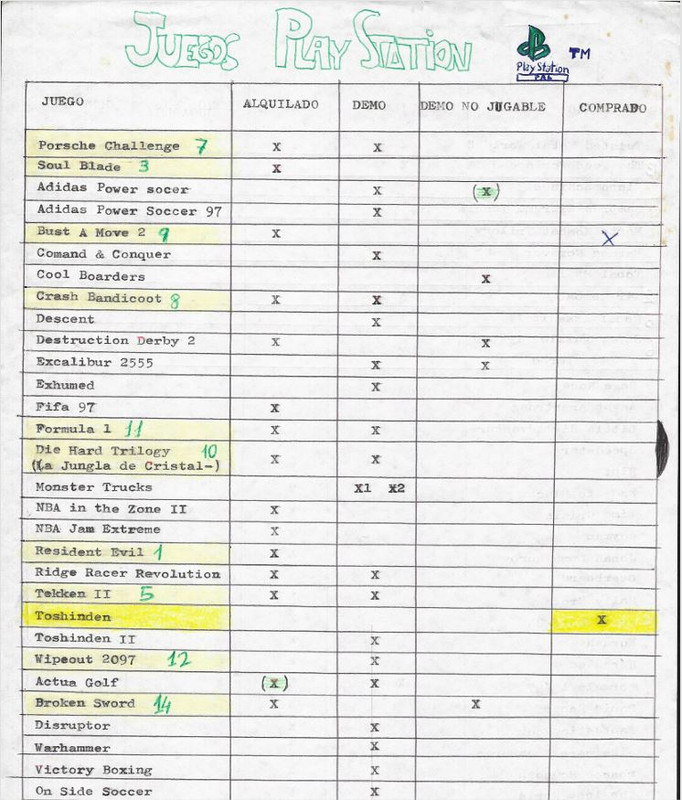 JUEGOS PLAY STATION
PlayStation TM
PAL
JUEGO ALQUILADO DEMO DEMO NO JUGABLE COMPRADO
Porsche Challenge 7 X X
Soul Blade 3 X
Adidas Power socer X (X)
Adidas Power Soccer 97 X
Bust A Move 2 9 X X
Comand & Conquer X
Cool Boarders X
Crash Bandicoot 8 X X
Descent X
Destruction Derby 2 X X
Excalibur 2555 X X
Exhumed X
Fifa 97 X
Formula 1 11 X X
Die Hard Trilogy 10
(La Jungla de Cristal-) X X
Monster Trucks X1 X2
NBA in the Zone II X
NBA Jam Extreme X
Resident Evil 1 X
Ridge Racer Revolution X X
Tekken II 5 X X
Toshinden X
Toshinden II X
Wipeout 2097 12 X
Actua Golf (X) X
Broken Sword 14 X X
Disruptor X
Warhammer X
Victory Boxing X
On Side Soccer X